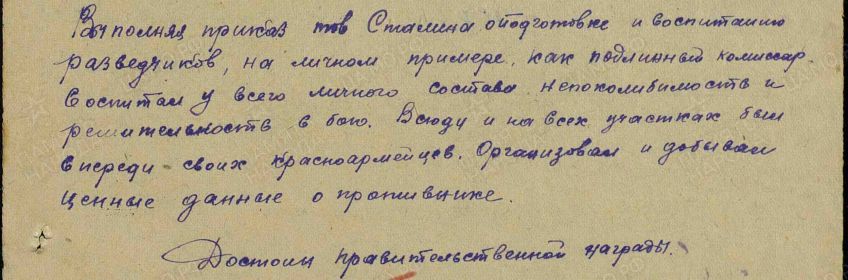 Выполняя приказ тов Сталина о подготовке и воспитанию
разведчиков, на личном примере, как подлинный комиссар.
воспитал у всего личного состава непоколибимость и
решительность в бою. Всюду и на всех участках был
впереди своих красноармейцев. Организовал и добывал
ценные данные о противнике.
Достоин правительственной награды.